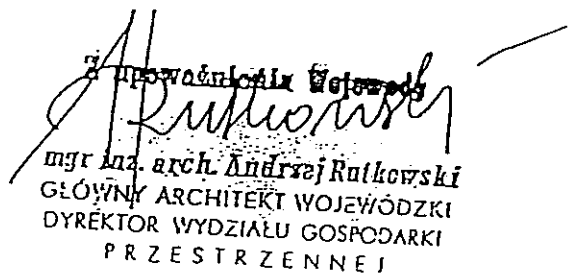 Z upoważnienia Wojewody
Rutkowski
mgr inż. arch. Andrzej Rutkowski
GŁÓWNY ARCHITEKT WOJEWÓDZKI
DYREKTOR WYDZIAŁU GOSPODARKI
PRZESTRZENNEJ